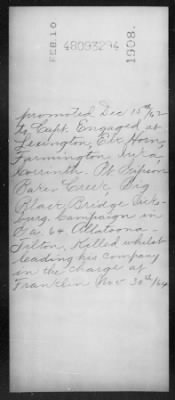 FEB 10
48093294
1908.
promoted Dec 15th/62
to Capt. Engaged at
Lexington, Elk Horn,
Farmington, Iuka,
Corrinth. Pt Gipson
Baker Creek, Big
Black Bridge Vicks-
burg. Campaign in
Ga. 64 Allatoona-
Tilton, Killed whilst
leading his company
in the charge at
Franklin Nov 30th/64